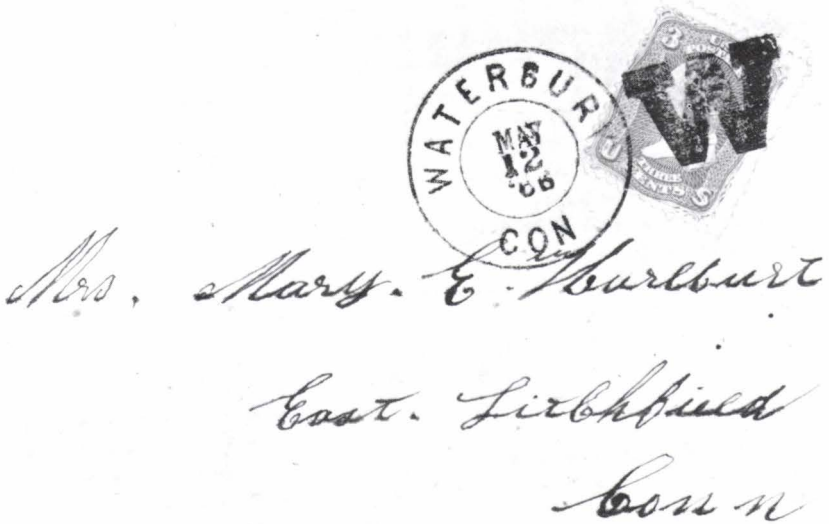 WATERBURY
MAY
12
'66
CON
3
W
THREE
CENTS
Mrs. Mary. E. Hurlburt
East. Litchfield
Conn